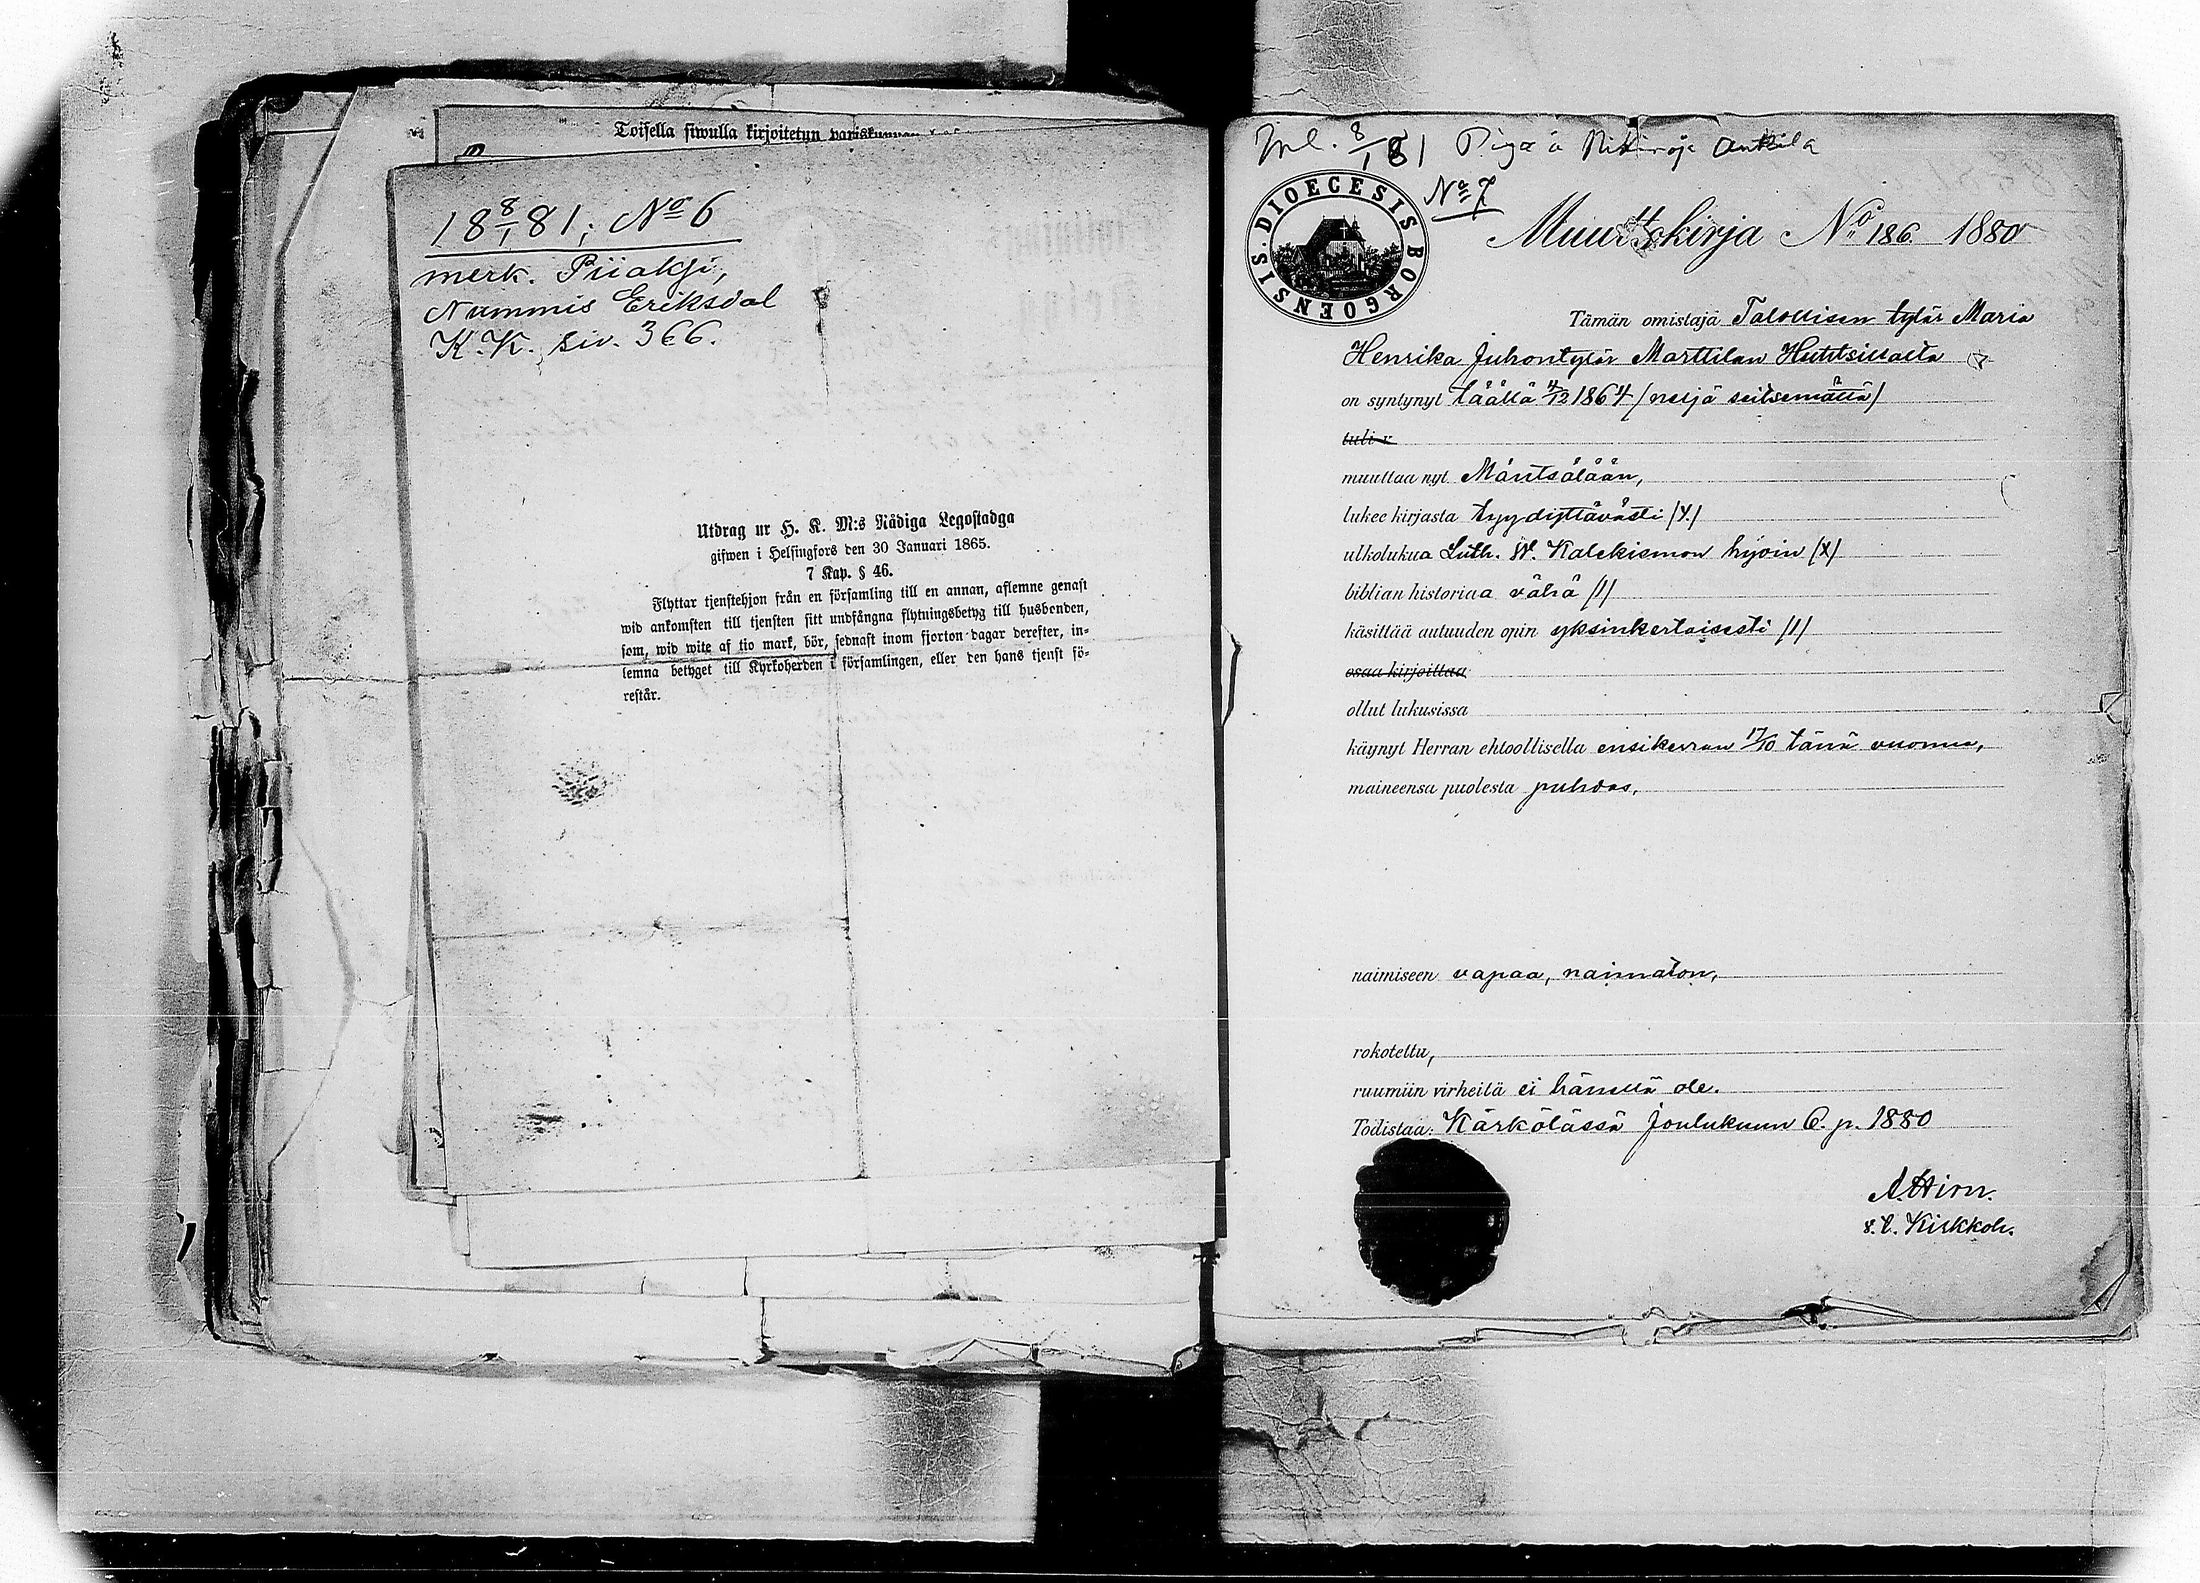 Toisella siwulla kirjoitetun
18 8/1 81; No 6
merk. Piiaksi,
Nummis Eriksdal
K.K. siv. 366.
Utdrag ur H. K. M:s Nådiga Legostadga
gifwen i Helsingfors den 30 Januari 1865.
7 Kap. § 46.
Flyttar tjenstehjon från en församling till en annan, aflemne genast
wid ankomsten till tjensten sitt undfångna flytningsbetyg till husbonden,
som, wid wite af tio mark, bör, sednast inom fjorton dagar derefter, in-
lemna betyget till Kyrkoherden i församlingen, eller den hans tjenst fö-
restår.
Inl. 8/1 81 Piga å Antila
No 7
DIOECESIS BORGOENSIS
Muuttokirja No 186. 1880
Tämän omistaja Talollisen tytär Maria
Henrika Juhontytär Marttilan Huhtsillalta
on syntynyt täällä 4/12 1864 (neljä seitsemättä)
tuli
muuttaa nyt Mäntsälään,
lukee kirjasta tyydyttävästi (Y.)
ulkolukua Luth. W. Katekismon hyvin (X)
biblian historiaa vähä (/)
käsittää autuuden opin yksinkertaisesti (/)
osaa kirjoittaa
ollut lukusissa
käynyt Herran ehtoollisella ensikerran 17/10 tänä vuonna,
maineensa puolesta puhdas,
naimiseen vapaa, naimaton,
rokotettu,
ruumiin virheitä ei hänellä ole.
Todistaa: Kärkölässä Joulukuun 6. p. 1880
A. Hirn.
v. t. Kirkkoh.